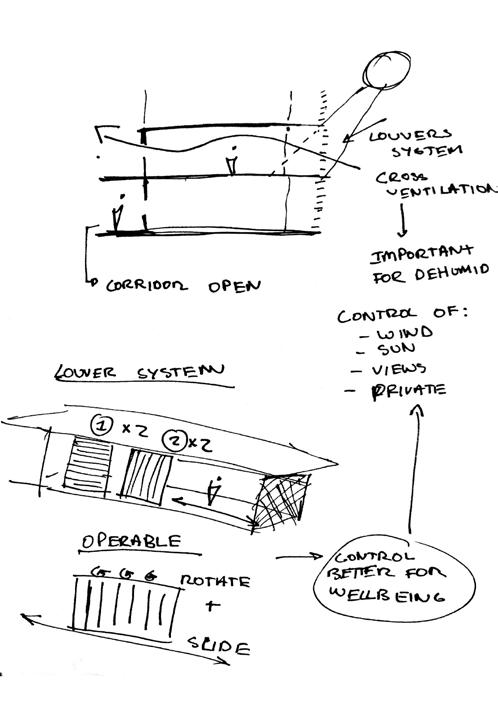 LOUVERS
SYSTEM
CROSS
VENTILATION
IMPORTANT
FOR DEHUMID
CORRIDOR OPEN
CONTROL OF:
- WIND
- SUN
- VIEWS
- PRIVATE
LOUVER SYSTEM
1 x2
2 x2
OPERABLE
ROTATE
+
SLIDE
CONTROL
BETTER FOR
WELLBEING